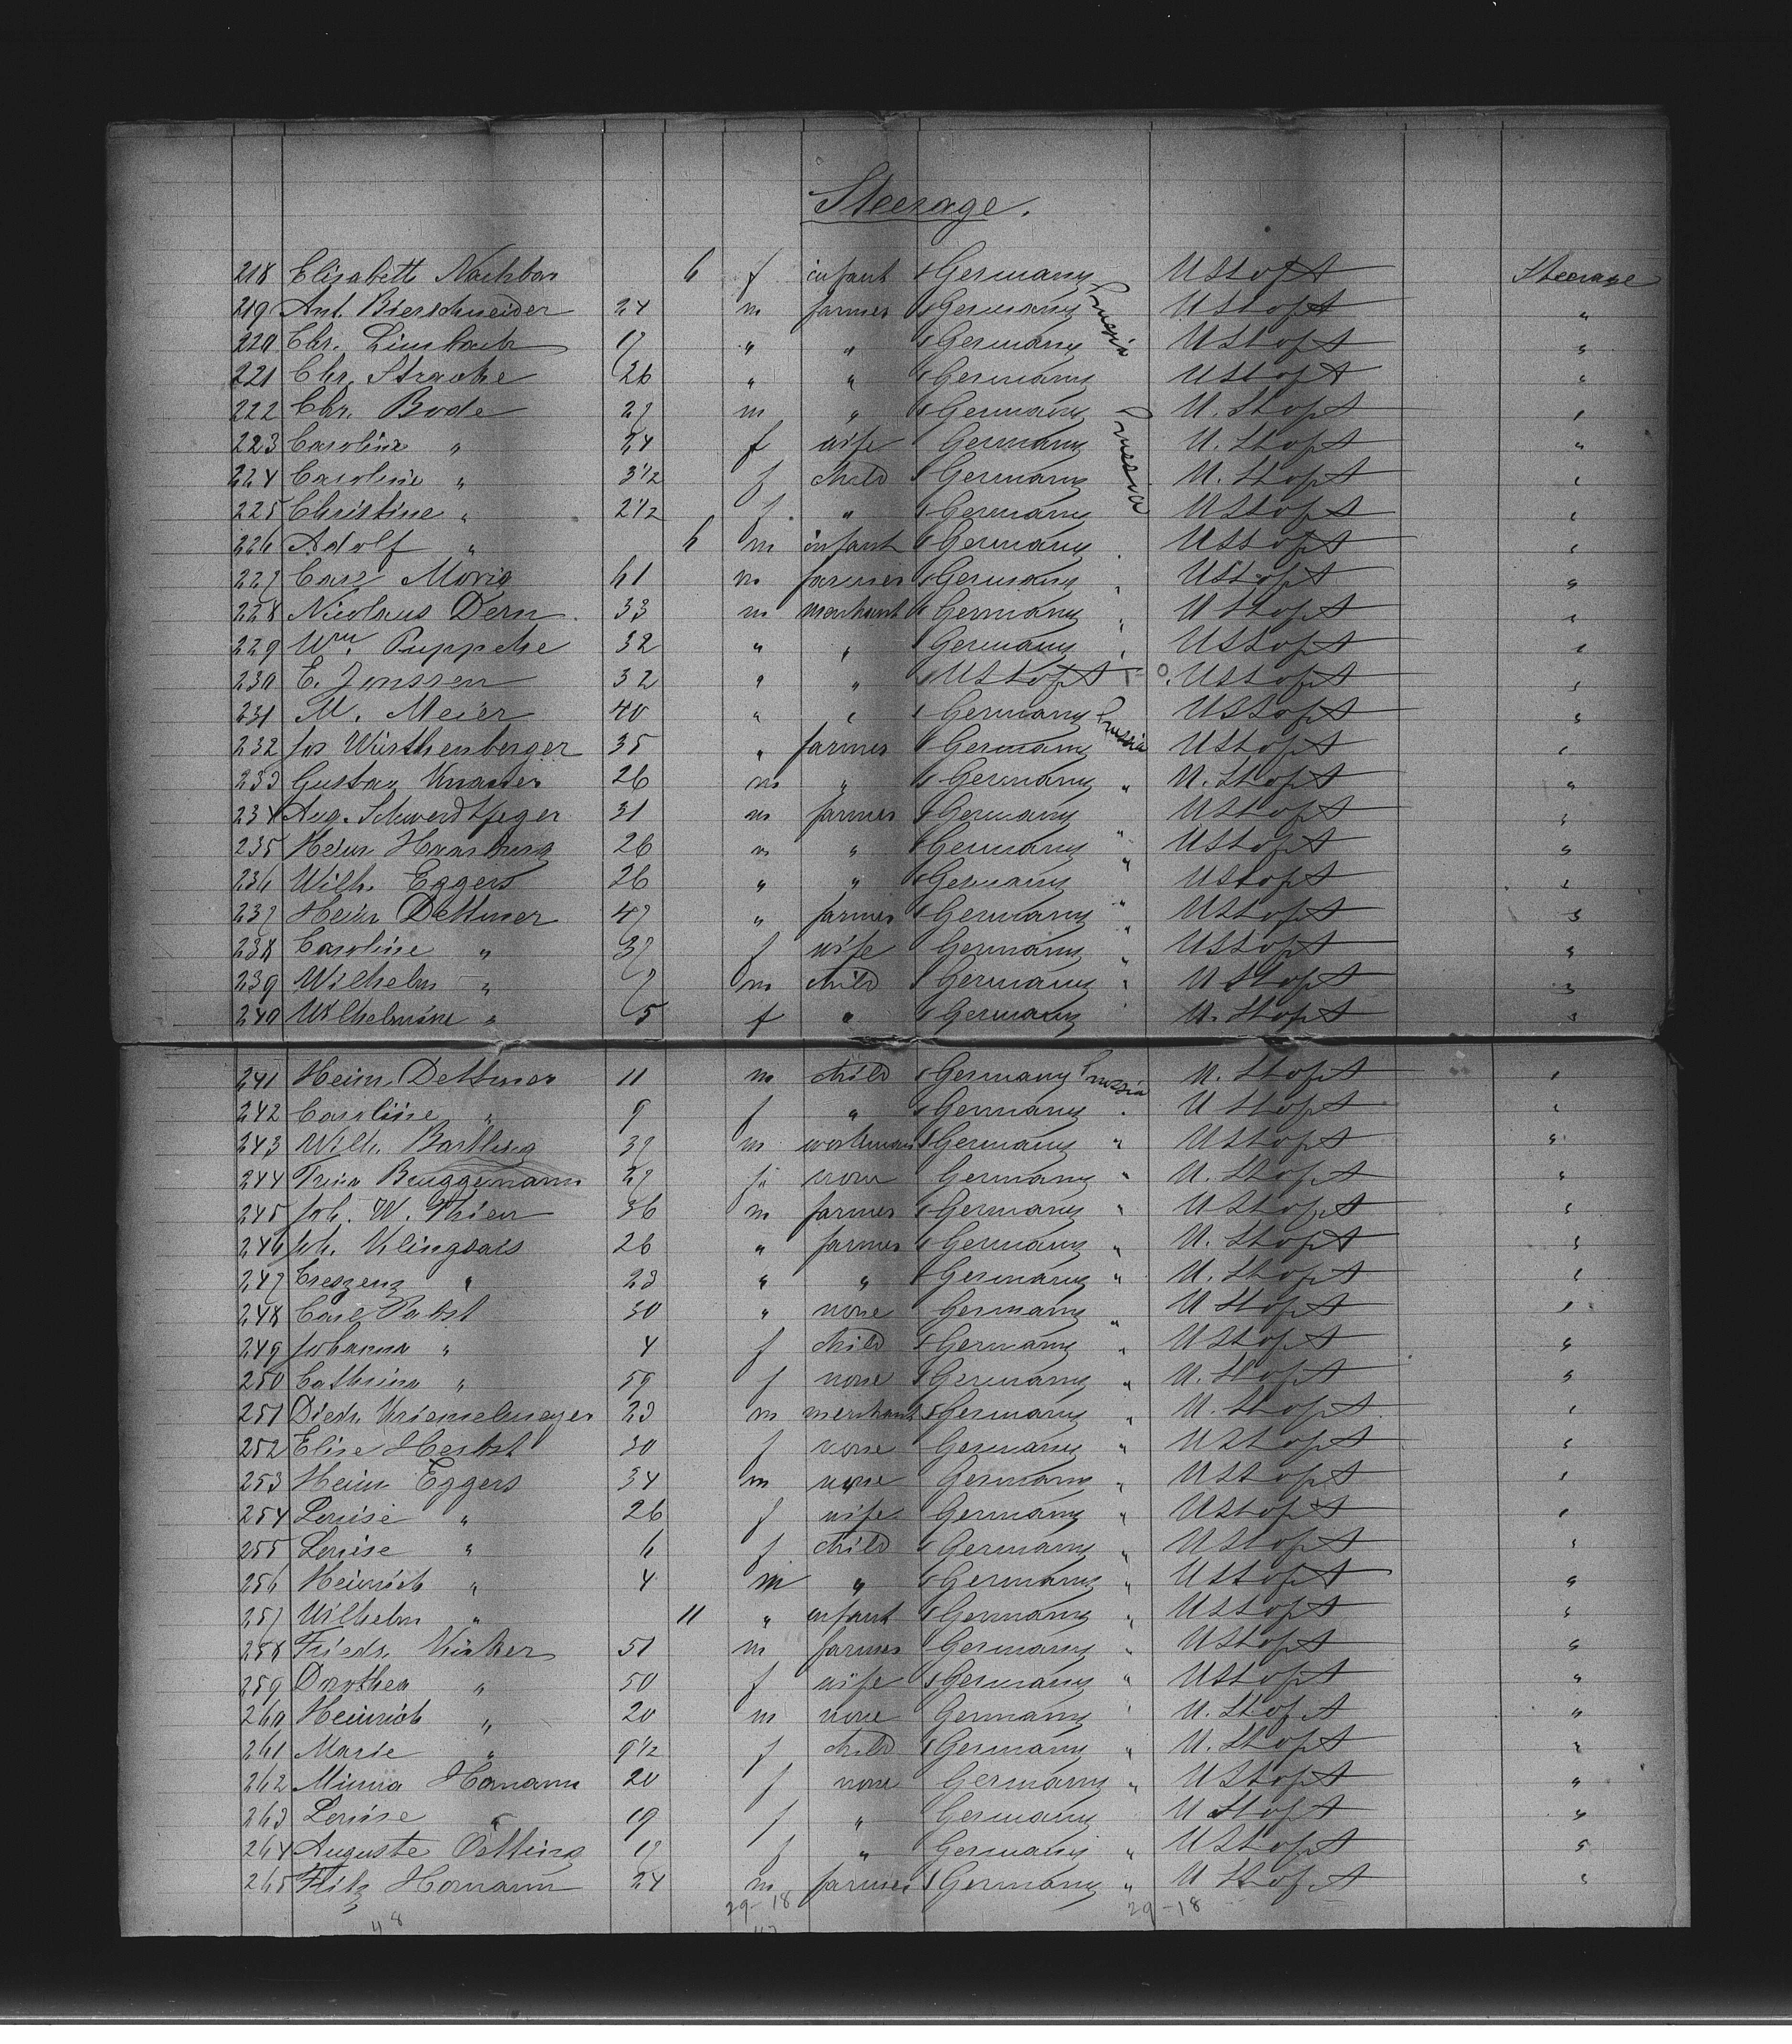 Steerage.
218 Elisabeth Nachbar 6 f infant Germany U St of A Steerage
219 Ant. Bierschneider 24 m farmer Germany Prussia U St of A "
220 Chr. Limbach 17 " " Germany U St of A "
221 Chr. Strache 26 " " Germany U St of A "
222 Chr. Bode 27 m " Germany Prussia U. St of A "
223 Caroline " 24 f wife Germany U. St of A "
224 Caroline " 3 1/2 f child Germany U. St of A "
225 Christine " 2 1/2 f. " Germany U St of A "
226 Adolf " 6 m infant Germany U St of A "
227 Carl Moriz 61 m farmer Germany " U St of A "
228 Nicolaus Dern 33 m merchant Germany " U St of A "
229 Wm. Puppche 32 " " Germany " U St of A "
230 E. Janssen 32 " " U St of A U St of A "
231 M. Meier 40 " " Germany Prussia U St of A "
232 Jos Würthenberger 35 " farmer Germany U St of A "
233 Gustav Knauer 26 m " Germany " U. St of A "
234 Aug. Schwerdtfeger 31 m farmer Germany U St of A "
235 Heinr 26 m " Germany " U St of A "
236 Wilh. Eggers 26 " " Germany " U St of A "
237 Heinr Dettmer 47 " farmer Germany " U St of A "
238 Caroline " 37 f wife Germany " U St of A "
239 Wilhelm " 7 m child Germany " U St of A "
240 Wilhelmine " 5 f " Germany " U. St of A "
241 Heinr. Dettmer 11 m child Germany Prussia U. St of A "
242 Caroline " 9 f " Germany " U St of A "
243 Wilh. Bartling 37 m workman Germany " U St of A "
244 Trina Bruggemann 27 f none Germany " U. St of A "
245 Joh. W. Thien 36 m farmer Germany " U St of A "
246 Joh. 26 " farmer Germany " U. St of A "
247 Creszenz " 23 " " Germany " U. St of A "
248 Carl Pabst 30 " none Germany " U St of A "
249 Johanna " 4 f child Germany " U St of A "
250 Cathrina " 59 f none Germany " U. St of A "
251 Diedr. Kriemelmeyer 23 m merchant Germany " U. St of A "
252 Elise Herbst 30 f none Germany " U St of A "
253 Heinr Eggers 34 m none Germany " U St of A "
254 Louise " 26 f wife Germany " U St of A "
255 Louise " 6 f child Germany " U St of A "
256 Heinrich " 4 m " Germany " U St of A "
257 Wilhelm " 11 " infant Germany " U St of A "
258 Friedr. 51 m farmer Germany " U St of A "
259 Dorothea " 50 f wife Germany " U St of A "
260 Heinrich " 20 m none Germany " U. St of A "
261 Marie " 9 1/2 f child Germany " U. St of A "
262 Minna Homann 20 f none Germany " U St of A "
263 Louise " 19 f " Germany U St of A "
264 Auguste Oelling 17 f " Germany " U St of A "
265 Fritz Homann 24 m farmer Germany " U St of A "
48 29-18 29-18